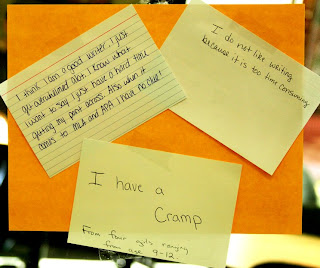 I think I am a good writer. I just
get overwhelmed alot. I know what
I want to say I just have a hard time
getting my point across. Also when it
comes to MLA and APA I have no clue!
I do not like writing
because it is too time consuming
I have a
Cramp
From four girls ranging
from age 9-12